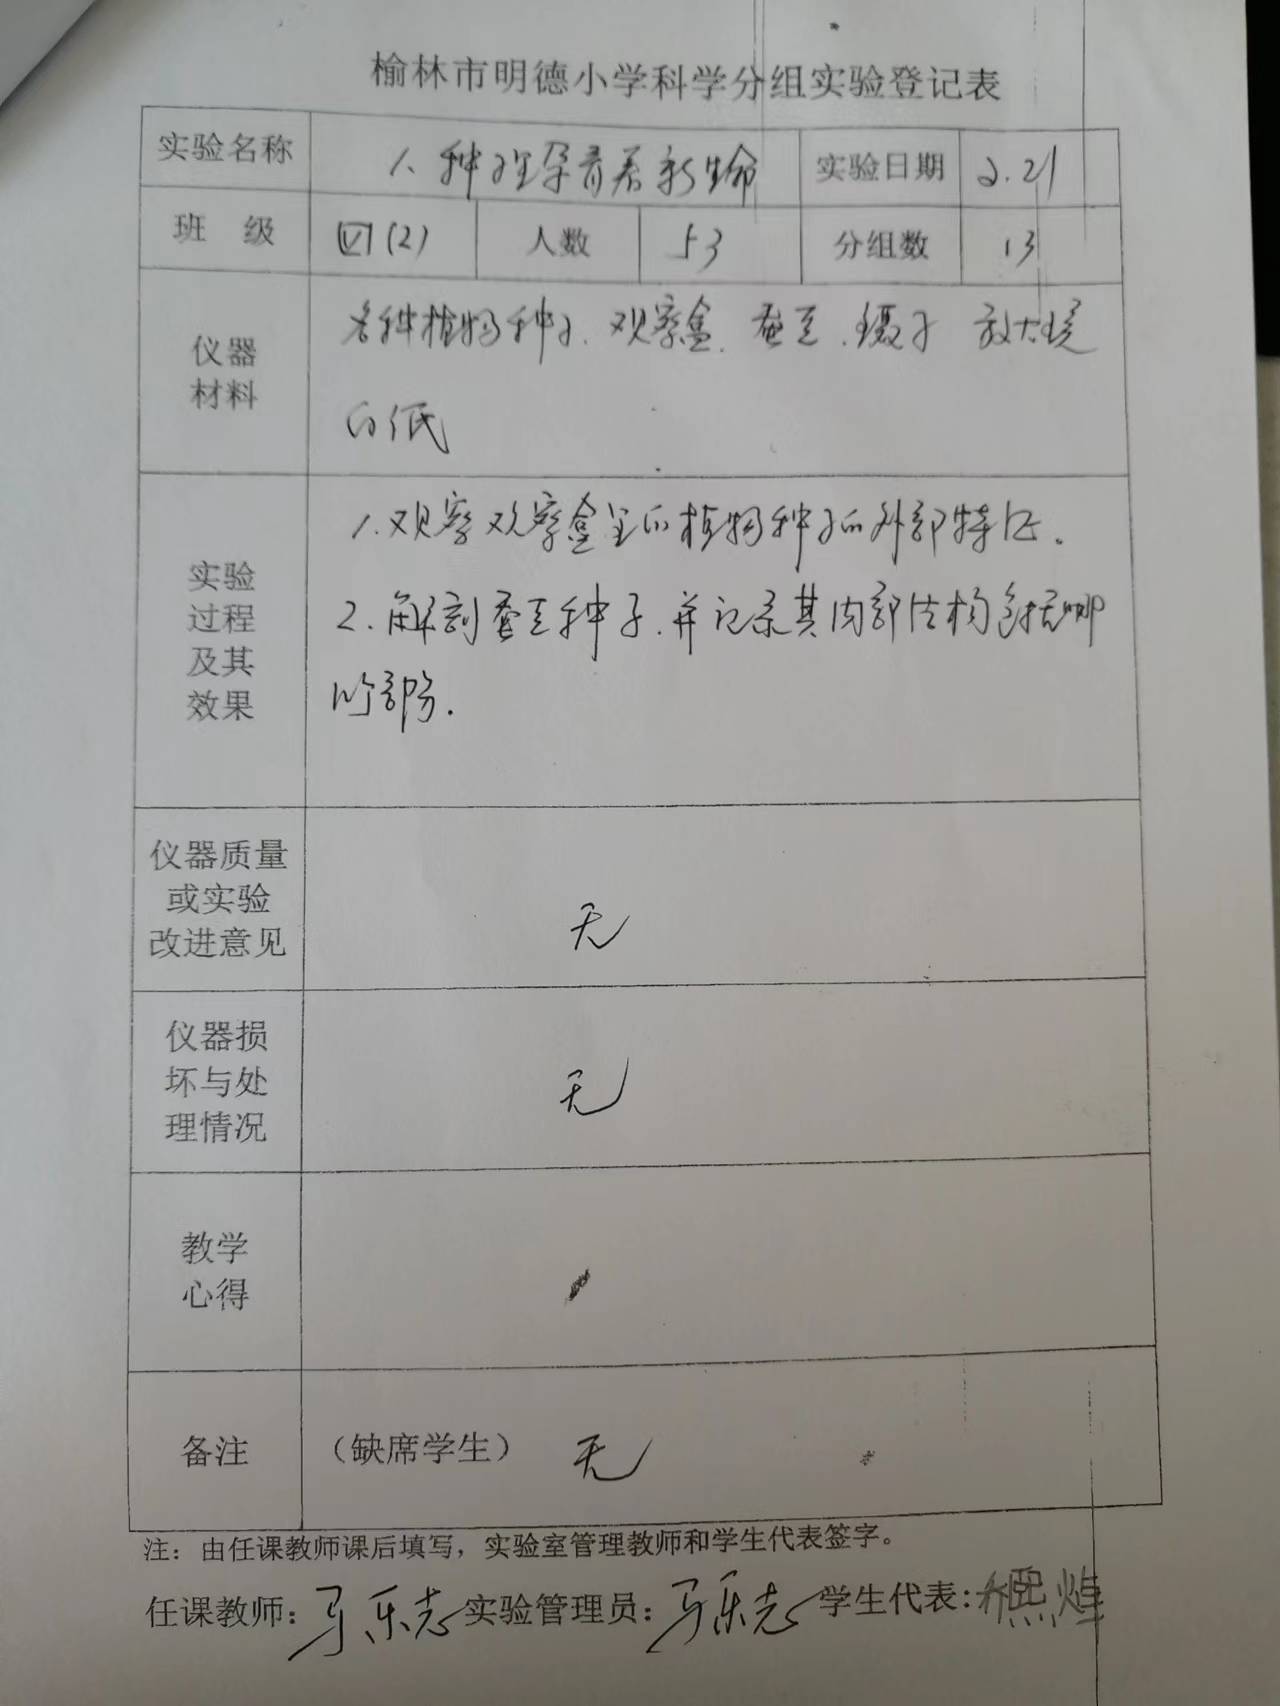 榆林市明德小学科学分组实验登记表
实验名称 1、种子里孕育着新生命 实验日期 2.21
班 级 四(2) 人数 53 分组数 13
仪器
材料
各种植物种子、观察盒、蚕豆、镊子 放大镜
白纸
实验
过程
及其
效果
1.观察观察盒里的植物种子的外部特征。
2.解剖蚕豆种子.并记录其内部结构包括哪
些部分.
仪器质量
或实验
改进意见
无
仪器损
坏与处
理情况
无
教学
心得
备注 （缺席学生） 无
注：由任课教师课后填写，实验室管理教师和学生代表签字。
任课教师：马乐志 实验管理员：马乐志 学生代表：熙焯